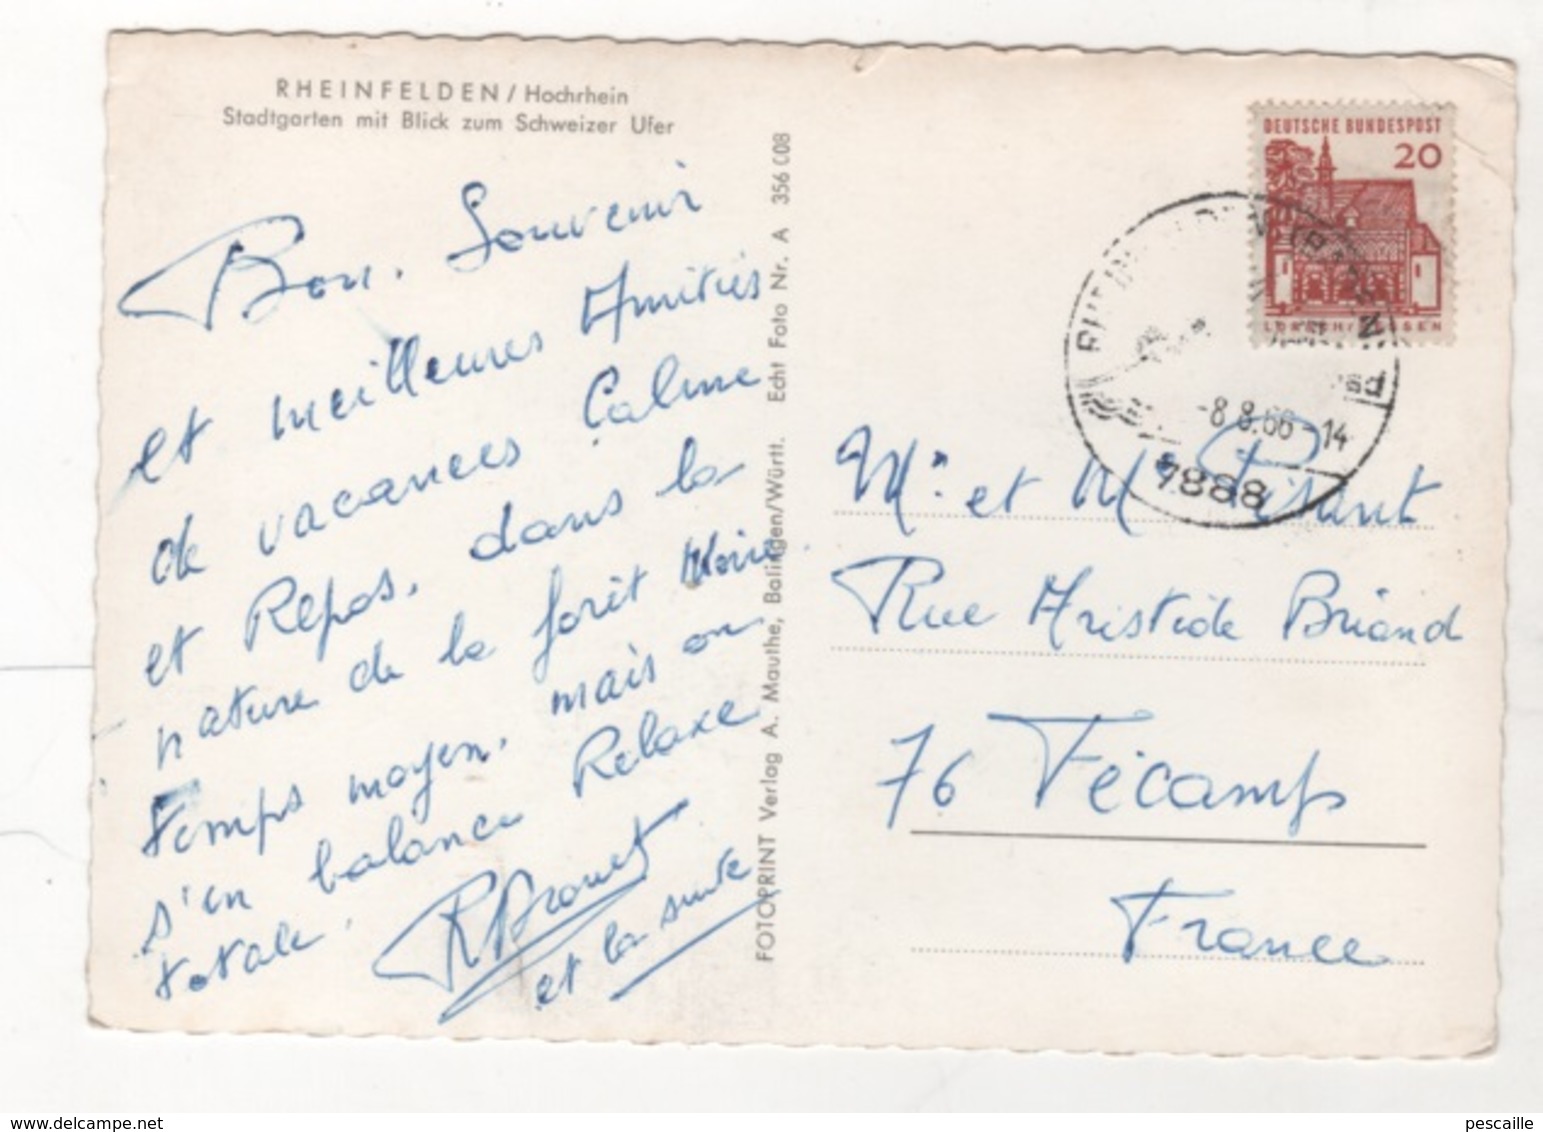 RHEINFELDEN / Hochrhein
Stadtgarten mit Blick zum Schweizer Ufer
Bon. Souvenir
et meilleures Amitiés
de vacances Calme
et Repos. dans la
nature de la forêt Noire
Temps moyen. mais on
s'en balance Relaxe
totale.
et la suite
FOTOPRINT Verlag A. Mauthe, Balingen/Württ. Echt Foto Nr. A 356 C08
DEUTSCHE BUNDESPOST
20
LORSCH/HESSEN
-8.8.66-14
7888
Mr et Me
Rue Aristide Briand
76 Fécamp
France
www.delcampe.net
pescaille